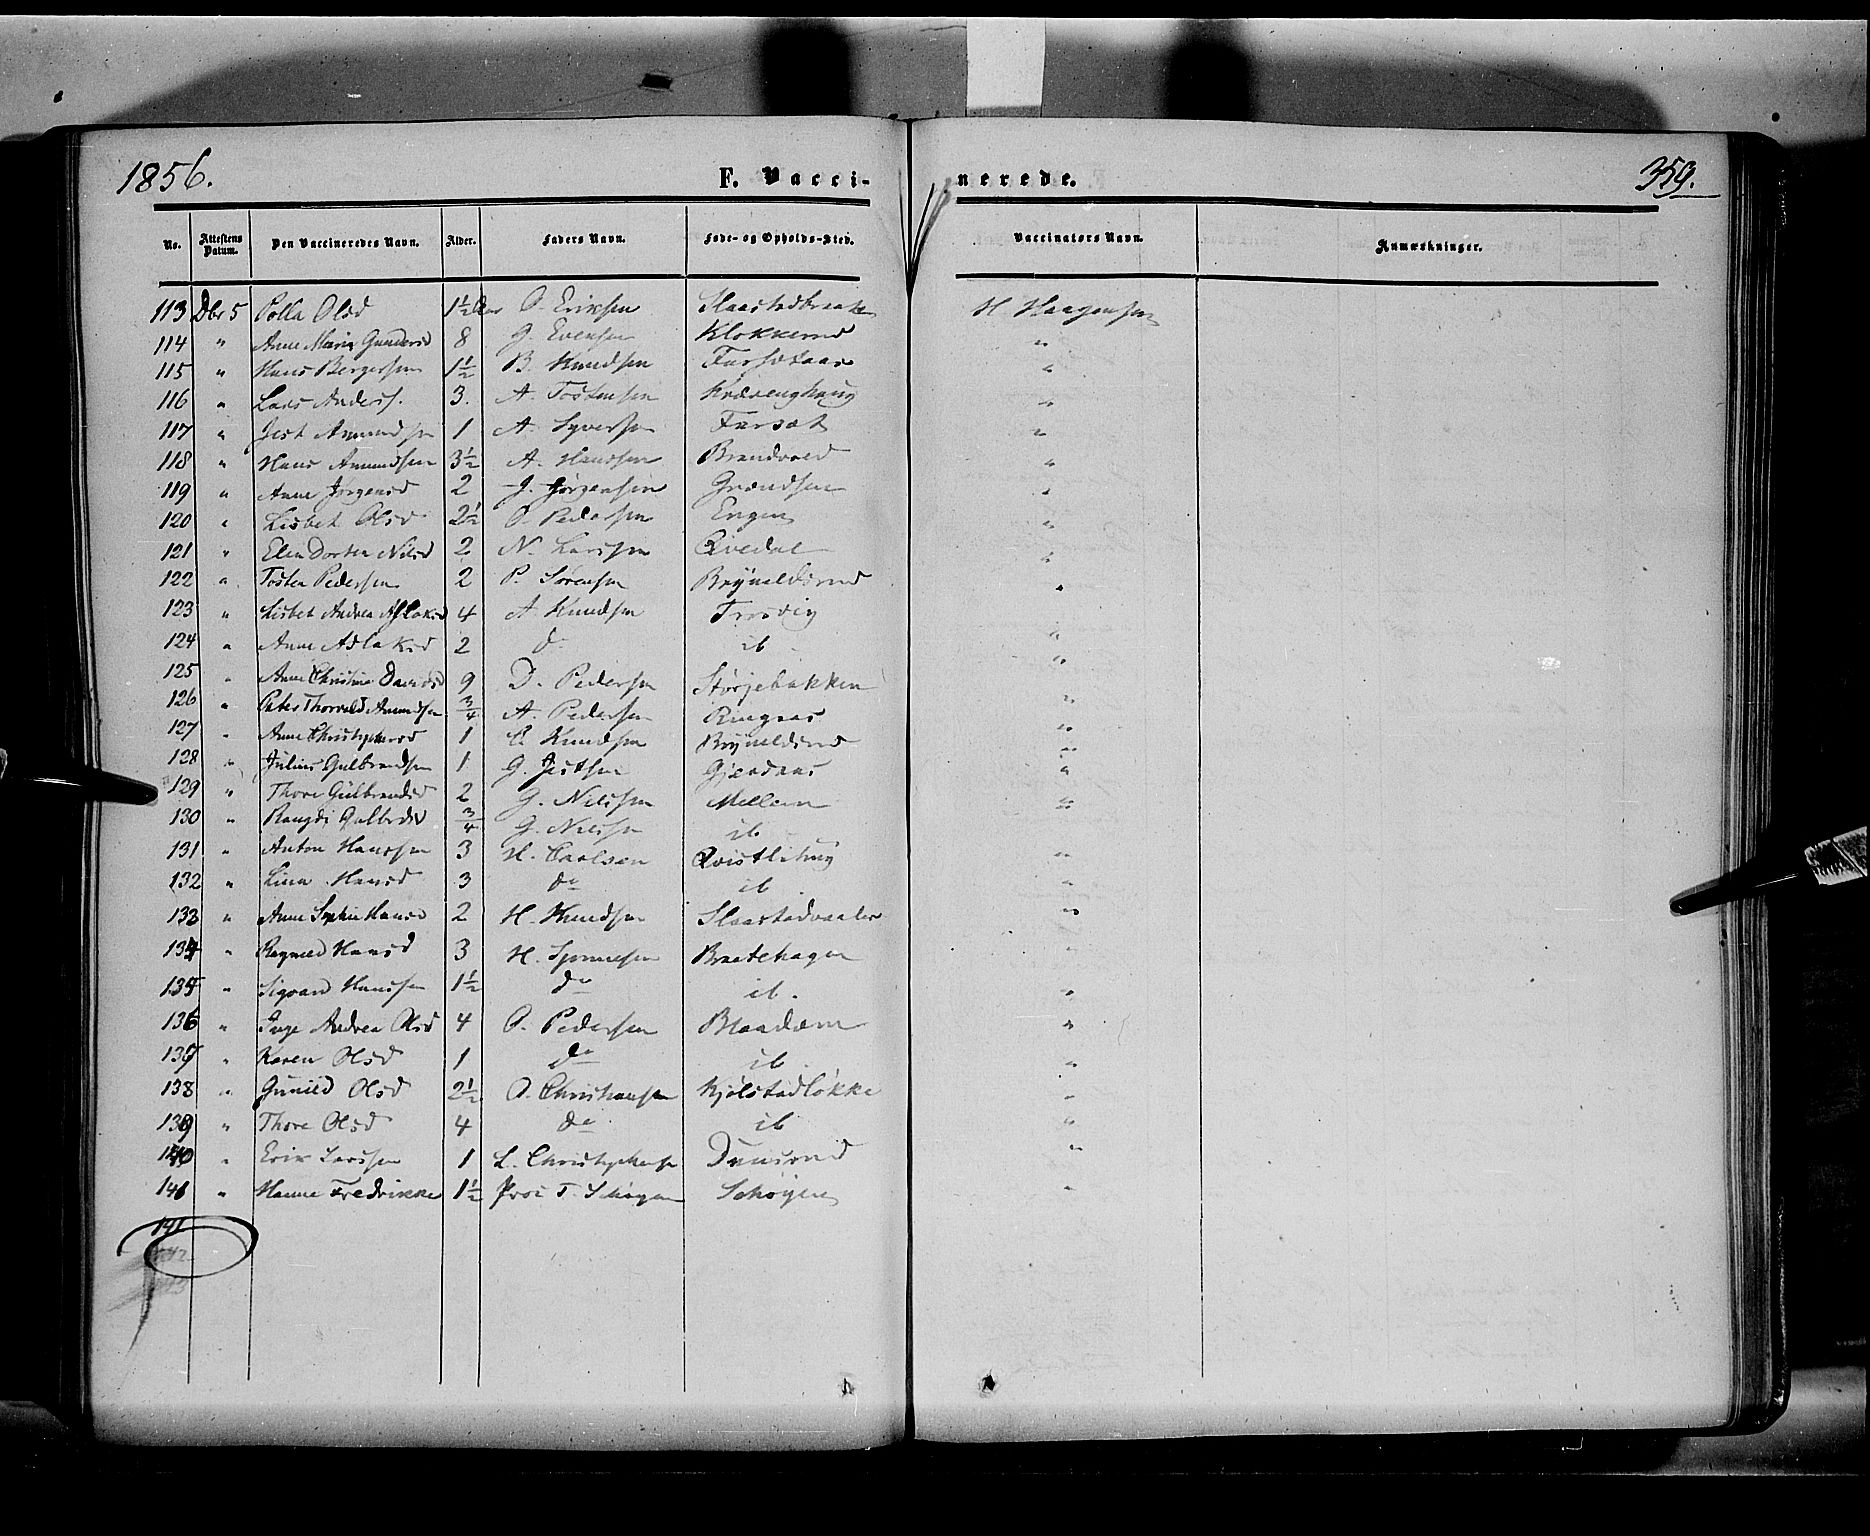 1856. F. Vacci- nerede. 359.
No. Attestens Datum. Den Vaccineredes Navn. Alder. Faders Navn. Føde- og Opholds-Sted. Vaccinators Navn. Anmærkninger.
113 Dbr 5 Polla Olsd 1½ Aar O. Eriksen Slaastadbraaten H. Haagensen
114 " Anne Maria Gundersd 8 G. Evensen Klokkerud "
115 " Hans Bergersen 1½ B. Knudsen Farsætaas "
116 " Lars Anders. 3. A. Tostensen "
117 " Jest Amundsen 1 A. Syversen Farsæt "
118 " Hans Amundsen 3½ A. Hansen Brandvold "
119 " Anne Jørgensd 2 J. Jørgensen Grændsen "
120 " Lisbet Olsd 2½ O. Pedersen Engen "
121 " Elen Dorthea Nilsd 2 N. Larssen Qvedal "
122 " Tosten Pedersen 2 P. Sørensen Bryneldsrud "
123 " Lisbet Andrea Aslaksd 4 A. Knudsen Trosvig "
124 " Anne Aslaksd 2 do ib "
125 " Anne Christine Davidsd 9 D. Pedersen Størjebakken "
126 " Peter Thorvald Amundsen ¾ A. Pedersen Ringaas "
127 " Anne Christophersd 1 C. Knudsen Bryneldsrud "
128 " Julius Gulbrandsen 1 G. Jestsen "
129 " Thore Gulbrandsd 2 G. Nilssen Mellem "
130 " Gulbrdsd ¾ G. Nilssen ib "
131 " Anton Hanssen 3 H. Carlsen Qvistlihug "
132 " Lina Hansd 3 do ib "
133 " Anne Sophie Hansd 2 H. Knudsen Slaastadvaaler "
134 " Ragnild Hansd 3 H. Braatehagen "
135 " Sigvard Hanssen 1½ do ib. "
136 " Inge Andrea Olsd 4 O. Pedersen Blaadam "
137 " Karen Olsd 1 do ib. "
138 " Gunild Olsd 2½ O. Christiansen Kjølstadløkke "
139 " Thore Olsd 4 do ib "
140 " Erik Larssen 1 L. Christophersen Dunsrud "
141 " Hanne Fredrikke 1½ T. Schøyen Schøyen "
141
142